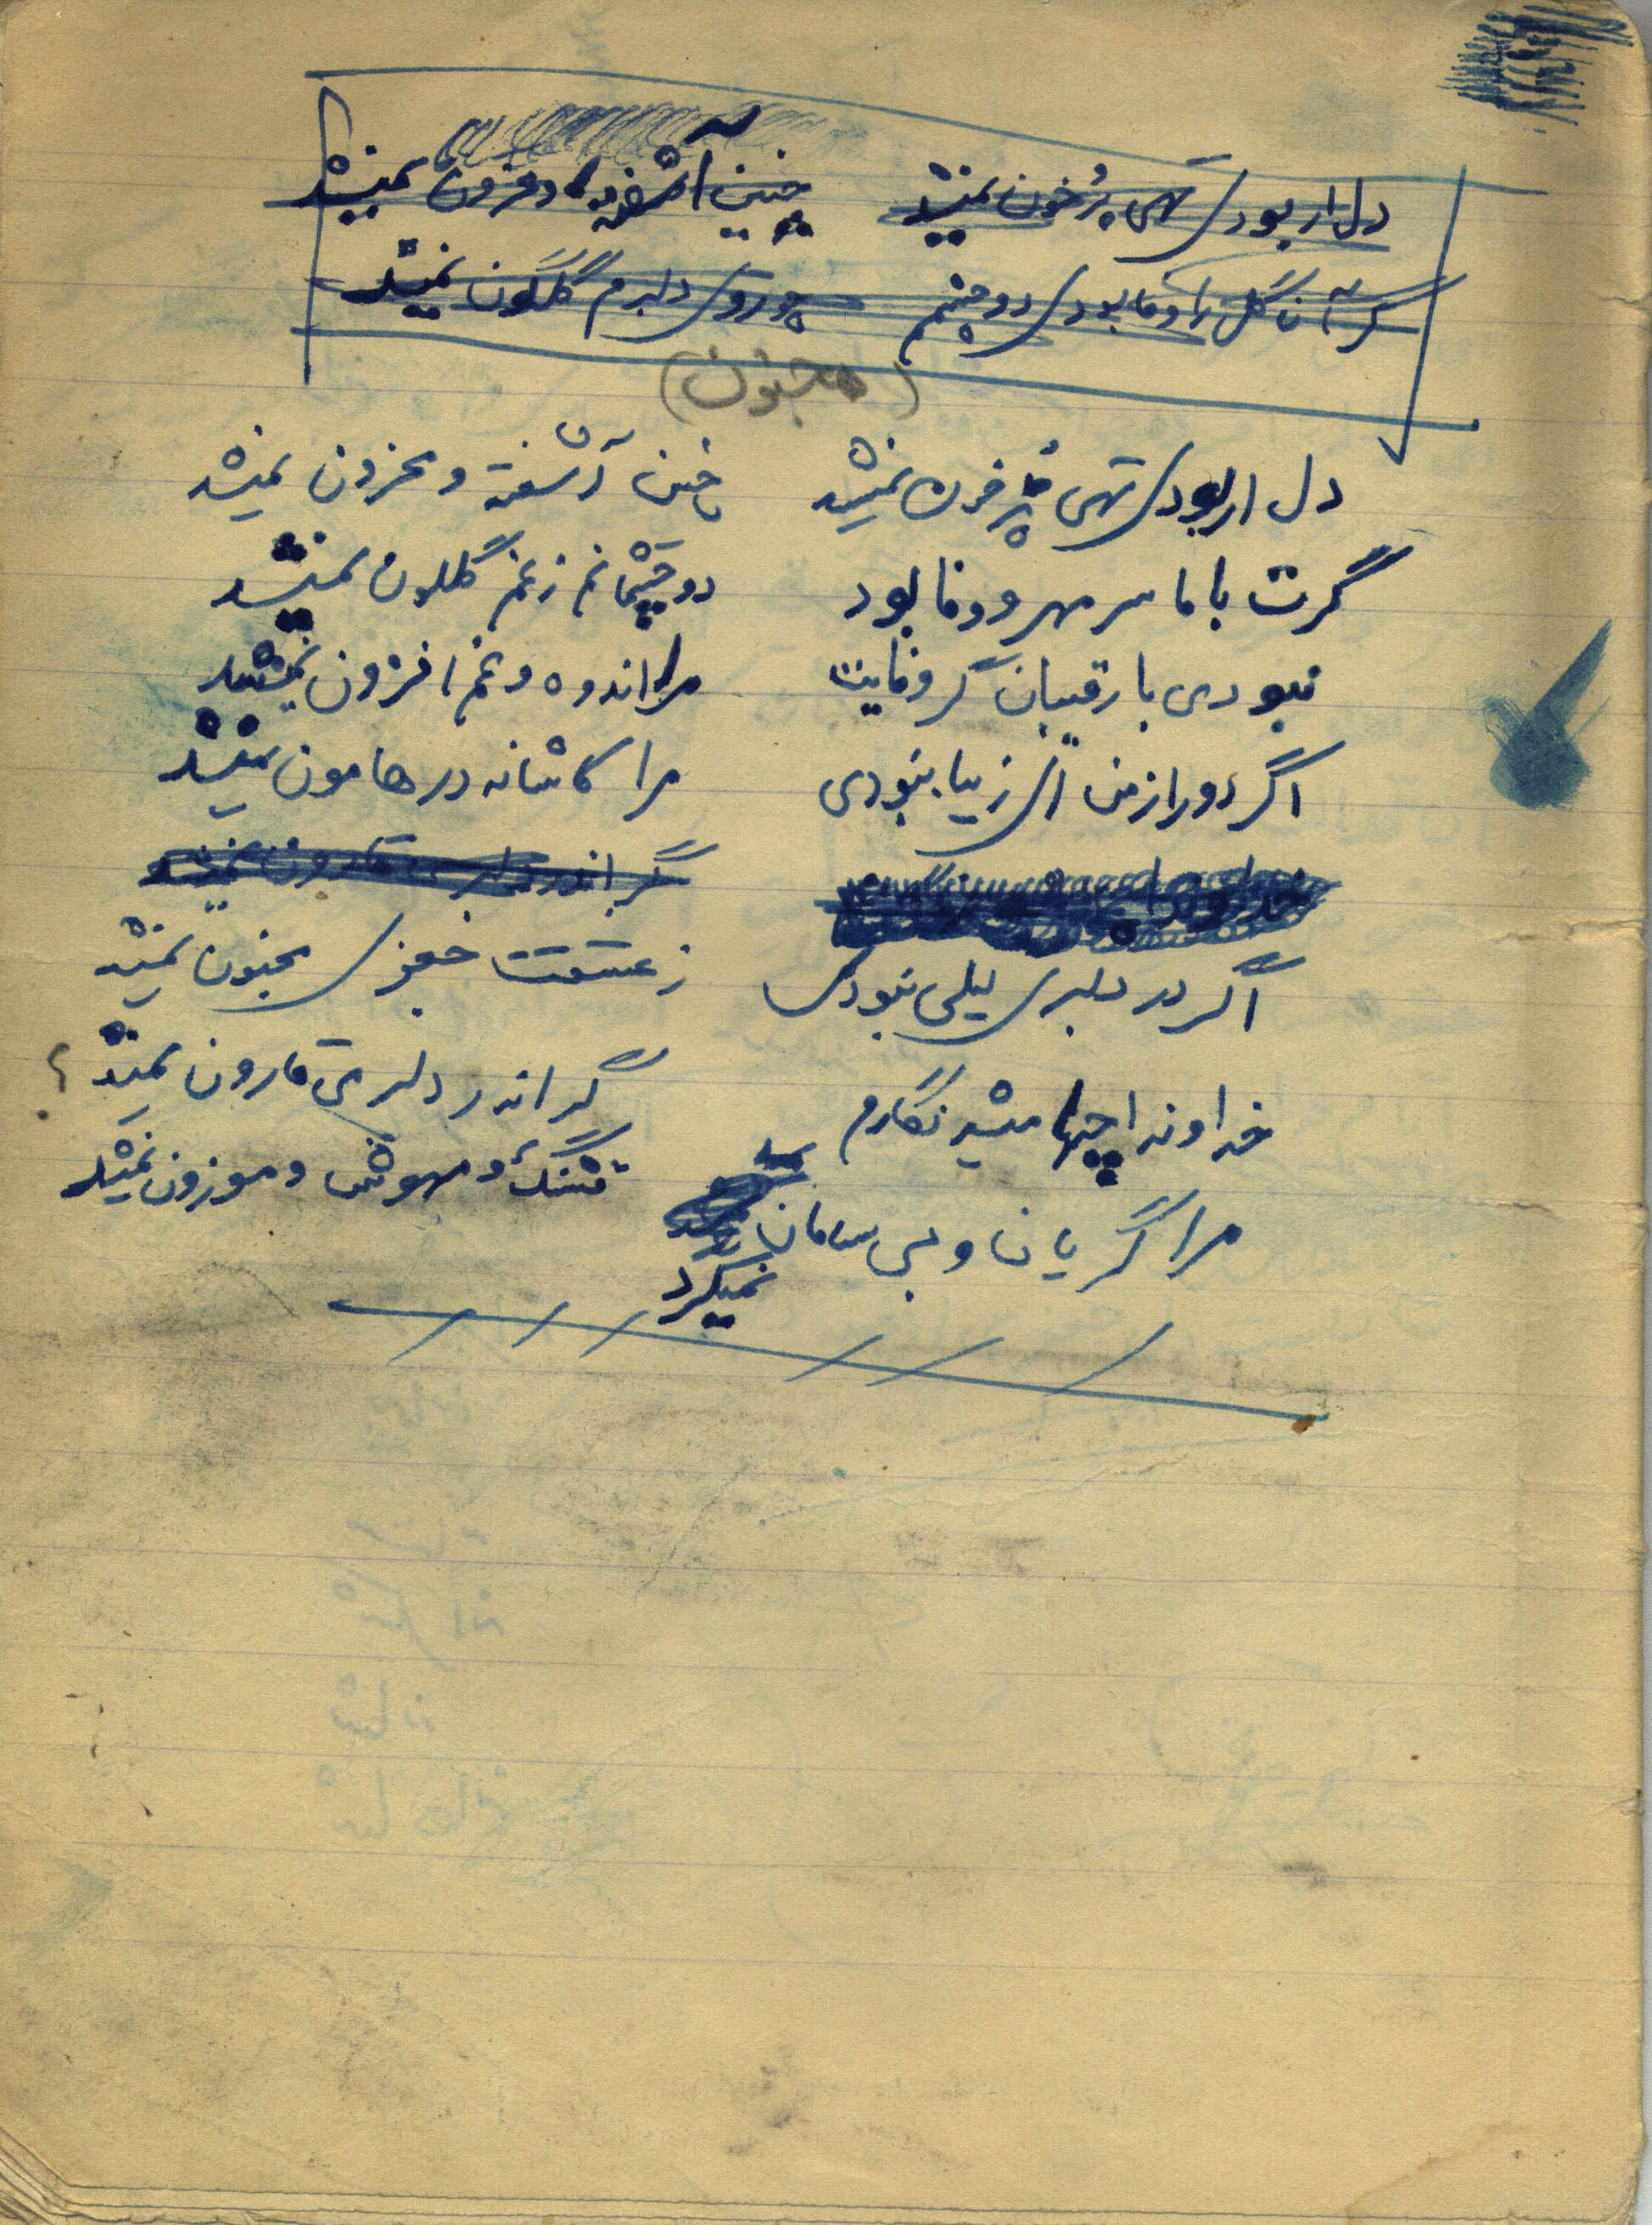 دل ار بودی تهی پُر خون نمیشد چنین آشفته و محزون نمیشد
گر آن گل را وفا بودی دو چشمم چو روی دلبرم گلگون نمیشد
(مجنون)
دل ار بودی تهی پُر خون نمیشد چنین آشفته و محزون نمیشد
گرت با ما سر مهر و وفا بود دو چشمانم ز غم گلگون نمیشد
نبودی با رقیبان گر وفایت مرا اندوه و غم افزون نمیشد
اگر دور از من ای زیبا نبودی مرا کاشانه در هامون نمیشد
گر اندر دلبری قارون نمیشد
اگر در دلبری لیلی نبودی ز عشقت جعفری مجنون نمیشد
خداوندا چها میشد نگارم گر اندر دلبری قارون نمیشد؟
مرا گریان و بی سامان نمیکرد قشنگ و مهوش و موزون نمیشد